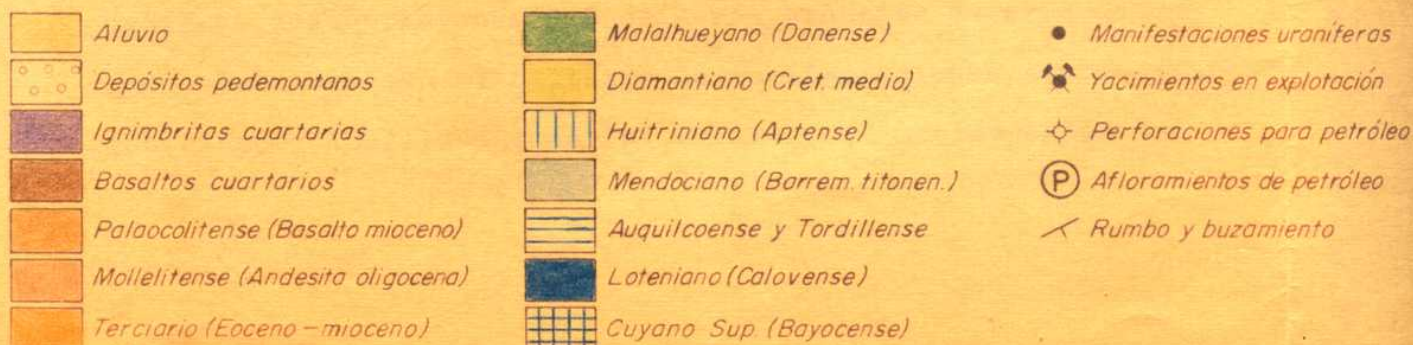 Aluvio
Depósitos pedemontanos
Ignimbritas cuartarias
Basaltos cuartarios
Palaocolitense (Basalto mioceno)
Mollelitense (Andesita oligocena)
Terciario (Eoceno-mioceno)
Malalhueyano (Danense)
Diamantiano (Cret. medio)
Huitriniano (Aptense)
Mendociano (Barrem. titonen.)
Auquilcoense y Tordillense
Loteniano (Calovense)
Cuyano Sup. (Bayocense)
Manifestaciones uraníferas
Yacimientos en explotación
Perforaciones para petróleo
P Afloramientos de petróleo
Rumbo y buzamiento